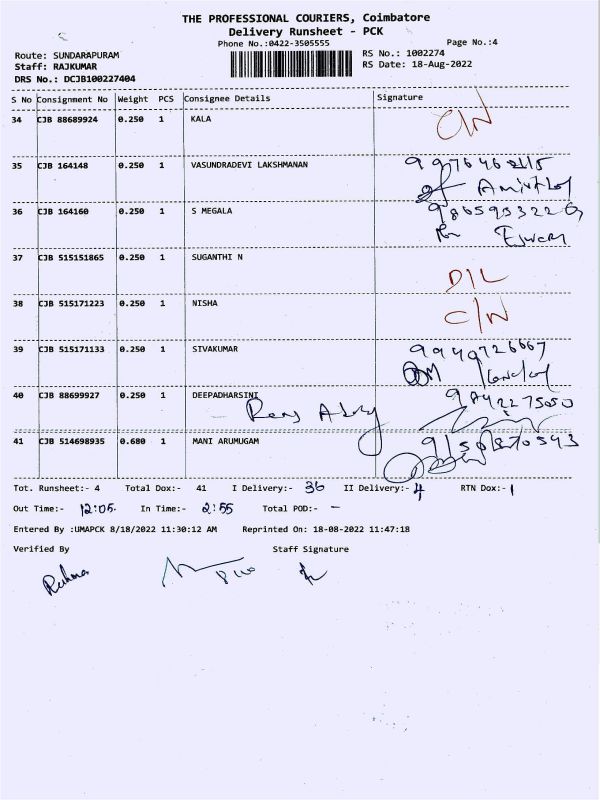 THE PROFESSIONAL COURIERS, Coimbatore
Delivery Runsheet - PCK
Phone No.:0422-3505555
Page No.:4
Route: SUNDARAPURAM
RS No.: 1002274
Staff: RAJKUMAR
RS Date: 18-Aug-2022
DRS No.: DCJB100227404
S No Consignment No Weight PCS Consignee Details Signature
34 CJB 88689924 0.250 1 KALA C/N
35 CJB 164148 0.250 1 VASUNDRADEVI LAKSHMANAN
36 CJB 164160 0.250 1 S MEGALA
37 CJB 515151865 0.250 1 SUGANTHI N D/L
38 CJB 515171223 0.250 1 NISHA C/N
39 CJB 515171133 0.250 1 SIVAKUMAR 9940726667
40 CJB 88699927 0.250 1 DEEPADHARSINI 9842275050
41 CJB 514698935 0.680 1 MANI ARUMUGAM 9150870543
Tot. Runsheet:- 4 Total Dox:- 41 I Delivery:- 36 II Delivery:- 4 RTN Dox:- 1
Out Time:- 12:05 In Time:- 2:55 Total POD:- -
Entered By :UMAPCK 8/18/2022 11:30:12 AM Reprinted On: 18-08-2022 11:47:18
Verified By Staff Signature